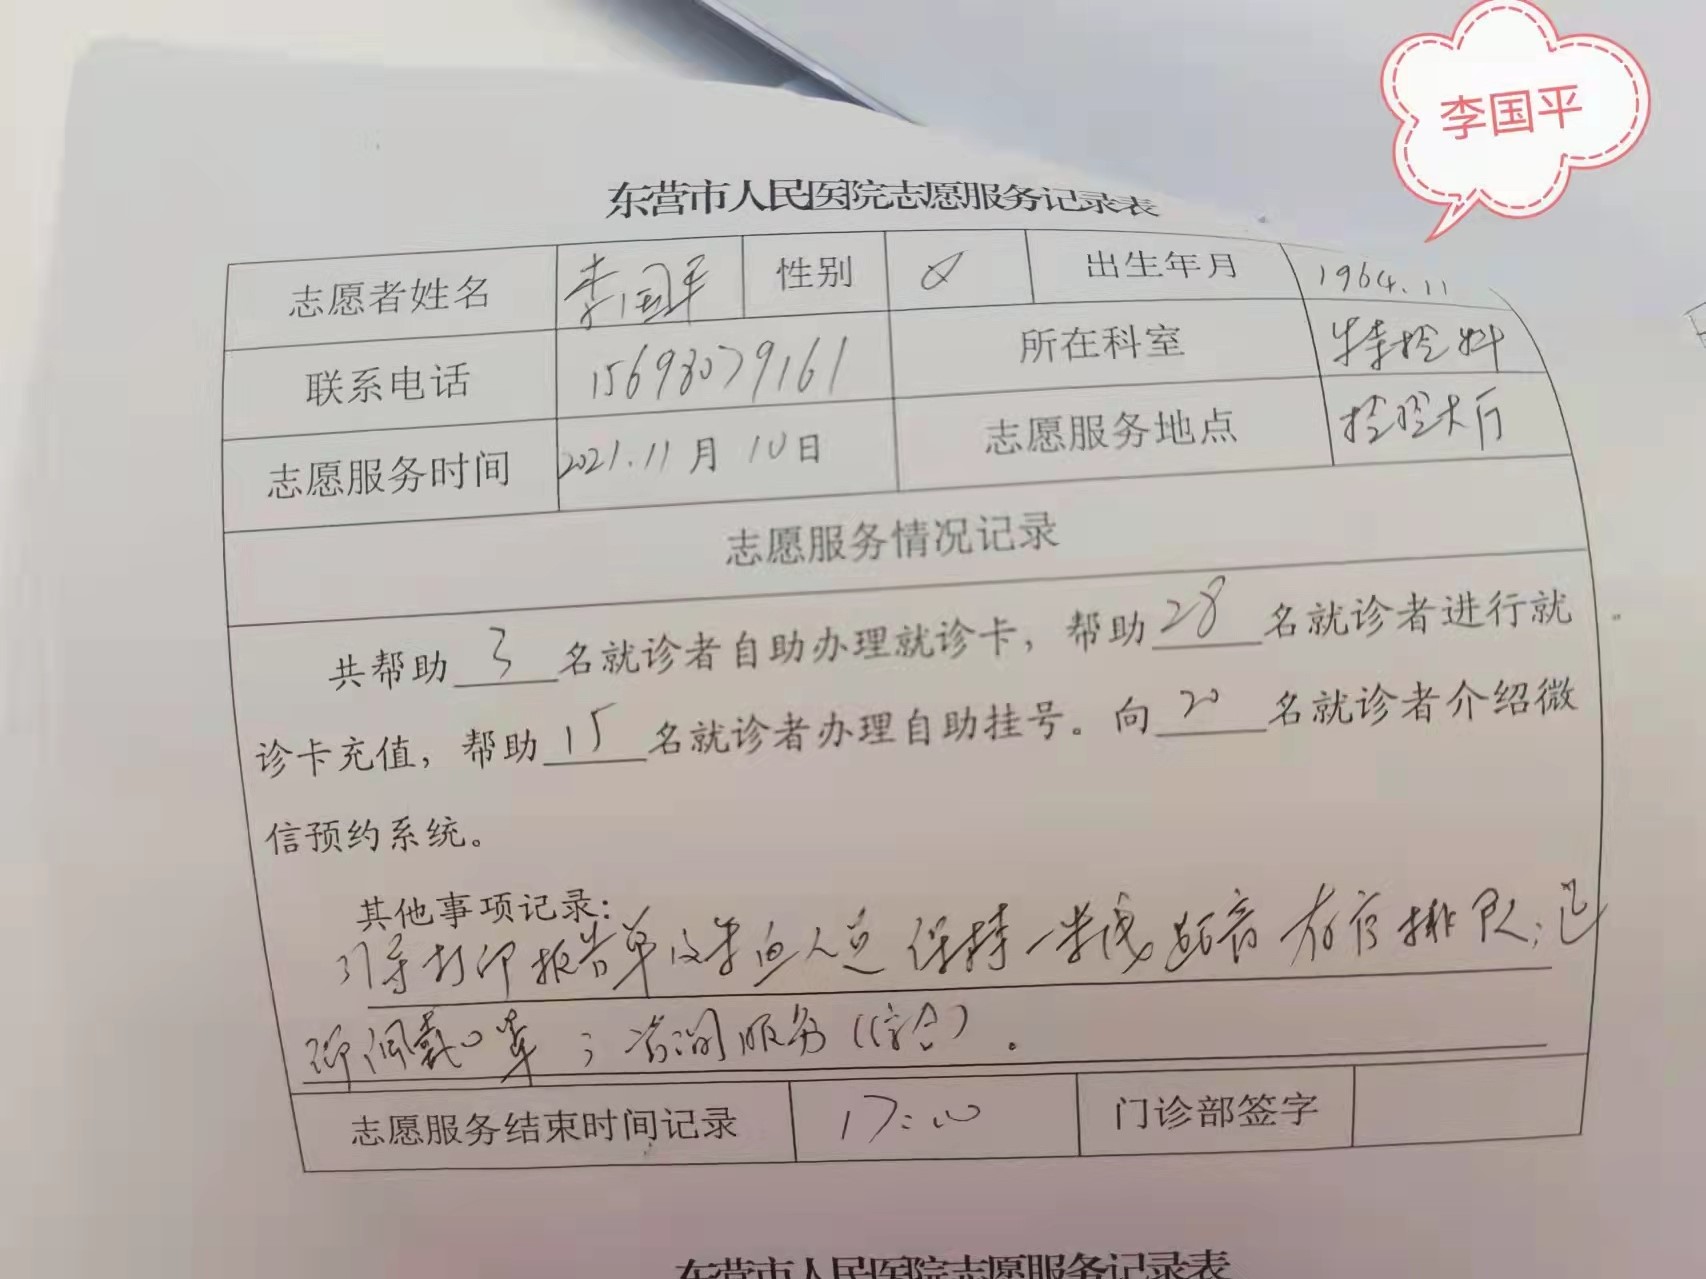 李国平
东营市人民医院志愿服务记录表
志愿者姓名 李国平 性别 女 出生年月 1964.11
联系电话 15698079161 所在科室 特检科
志愿服务时间 2021.11月10日 志愿服务地点 检验大厅
志愿服务情况记录
共帮助3名就诊者自助办理就诊卡，帮助28名就诊者进行就
诊卡充值，帮助15名就诊者办理自助挂号。向20名就诊者介绍微
信预约系统。
其他事项记录：
引导打印报告单及采血人员保持一米线距离有序排队；提
醒佩戴口罩；咨询服务(综合)。
志愿服务结束时间记录 17:00 门诊部签字
东营市人民医院志愿服务记录表